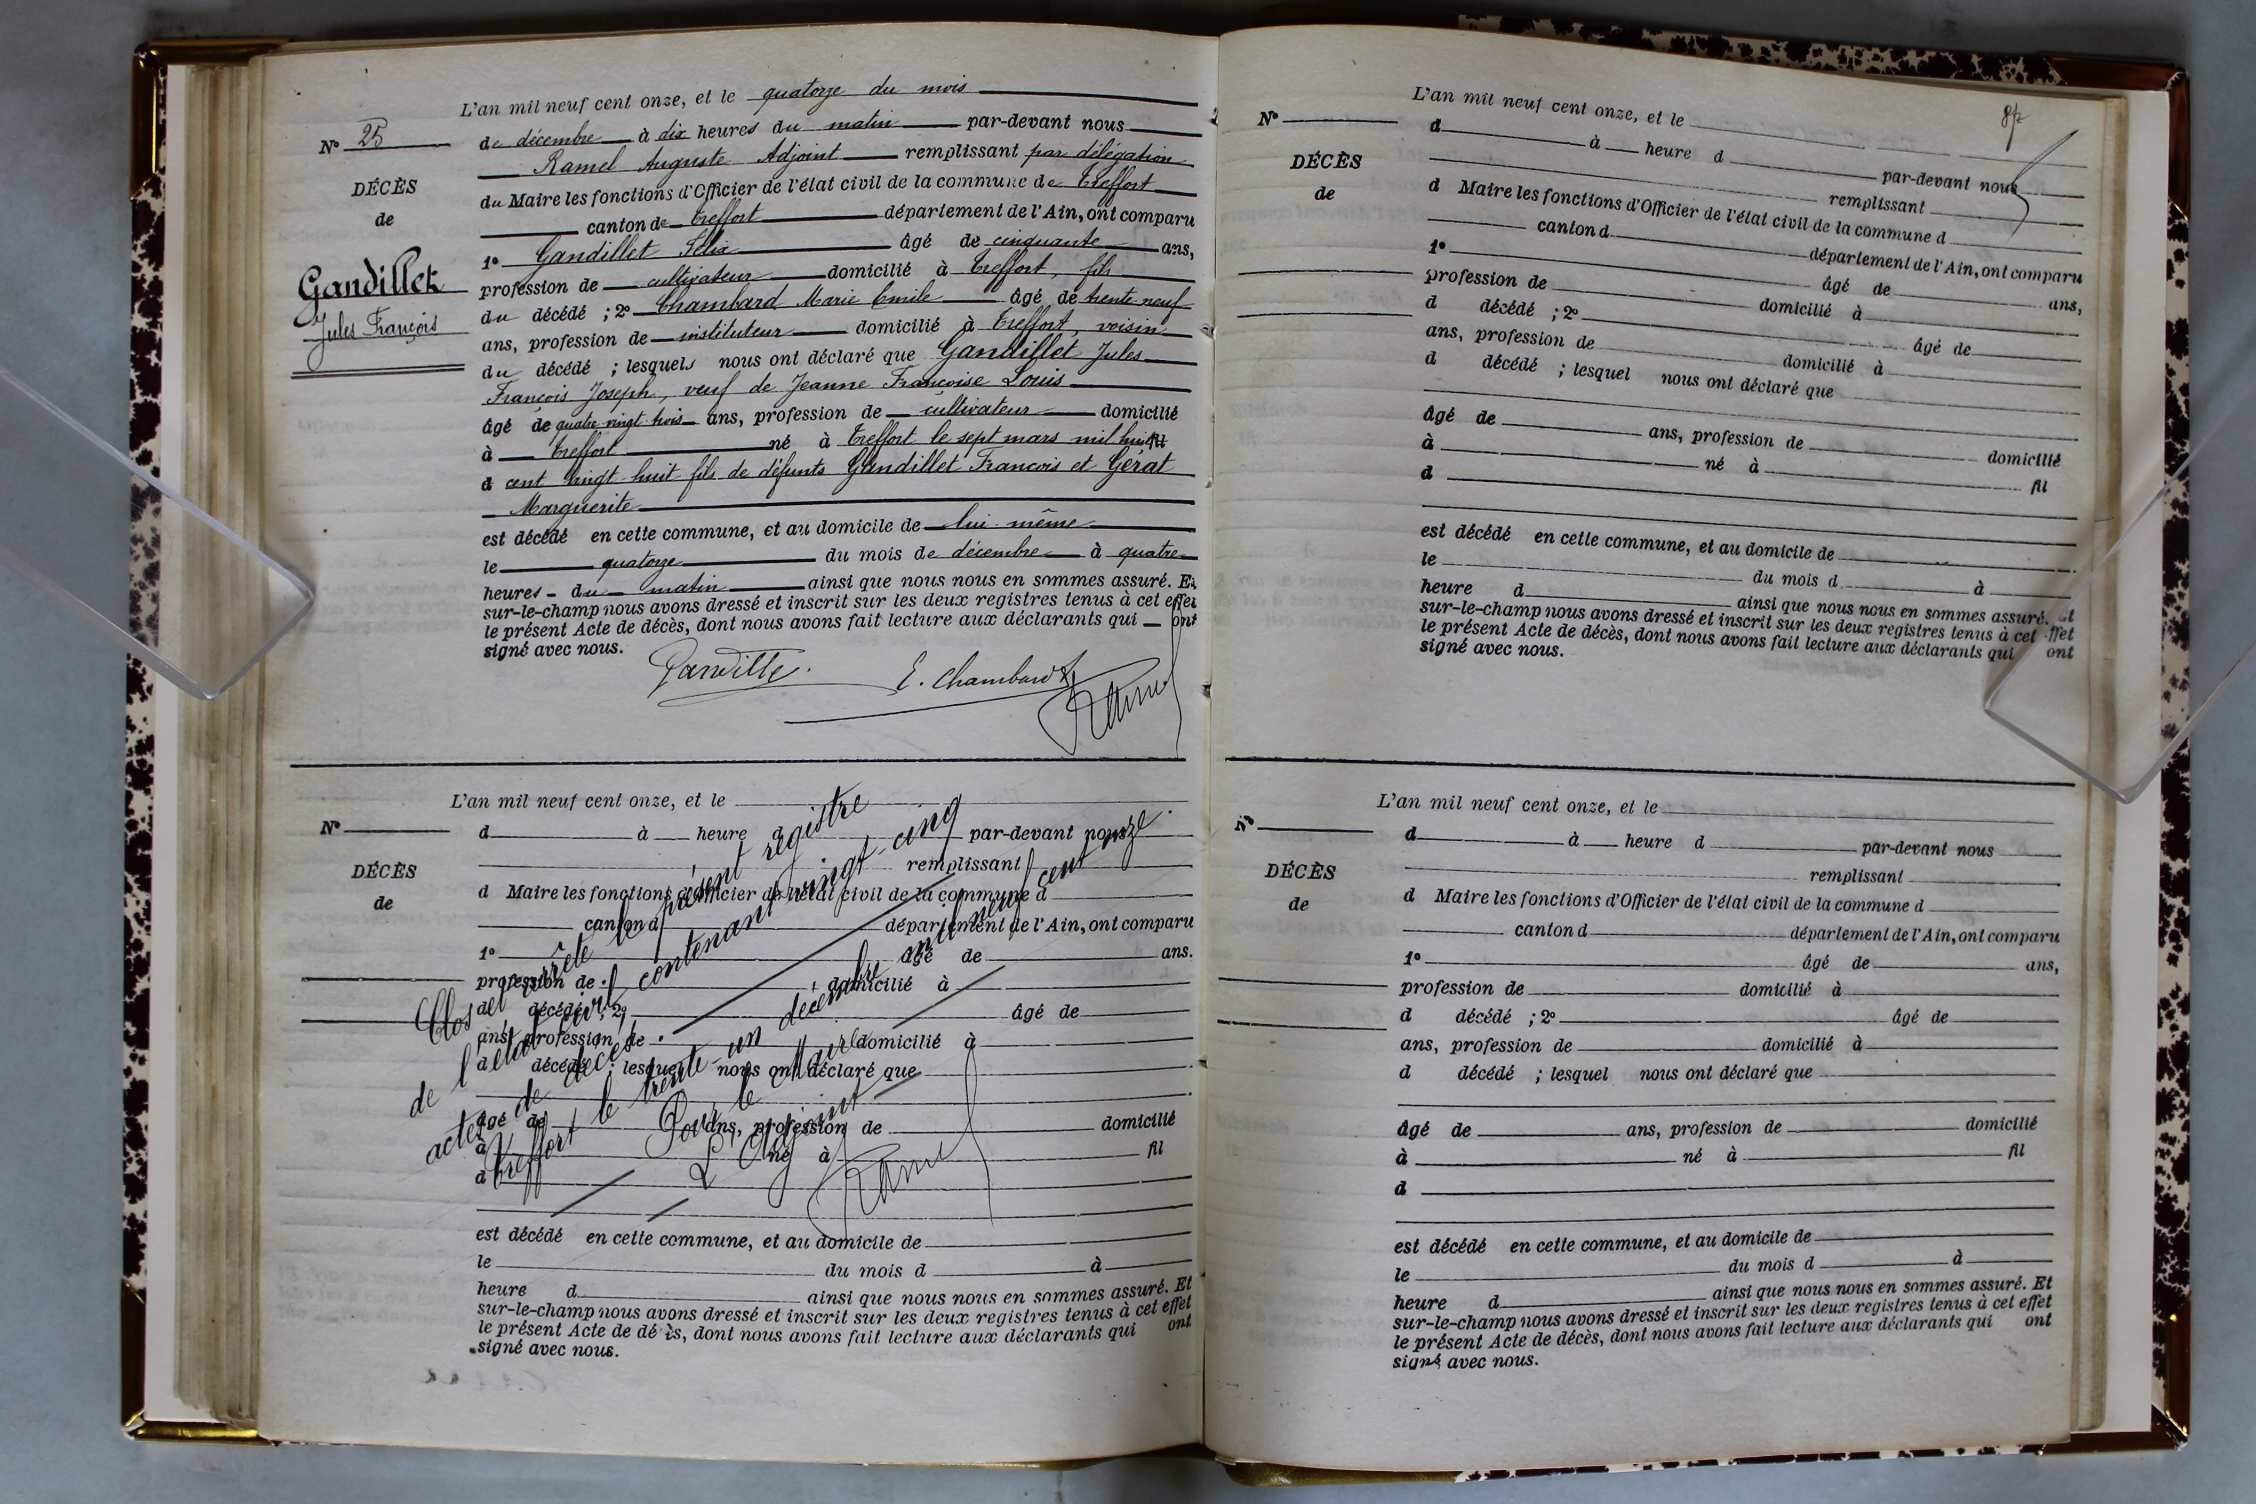 L'an mil neuf cent onze, et le quatorze du mois
N° 25
de décembre à dix heures du matin par-devant nous
Ramel Auguste Adjoint remplissant par délégation
DÉCÈS
du Maire les fonctions d'Officier de l'état civil de la commune de Treffort
de
canton de Treffort département de l'Ain, ont comparu
Gandillet
Jules François
1° Gandillet Félix âgé de cinquante ans,
profession de cultivateur domicilié à Treffort, fils
du décédé ; 2° Chambard Marie Emile âgé de trente neuf
ans, profession de instituteur domicilié à Treffort, voisin
du décédé ; lesquels nous ont déclaré que Gandillet Jules
François Joseph, veuf de Jeanne Françoise Louis
âgé de quatre vingt trois ans, profession de cultivateur domicilié
à Treffort né à Treffort le sept mars mil huit fil
d cent vingt huit fils de défunts Gandillet François et Gérat
Marguerite
est décédé en cette commune, et au domicile de lui-même
le quatorze du mois de décembre à quatre
heures du matin ainsi que nous nous en sommes assuré. Et
sur-le-champ nous avons dressé et inscrit sur les deux registres tenus à cet effet
le présent Acte de décès, dont nous avons fait lecture aux déclarants qui ont
signé avec nous.
Gandillet
E. Chambard
Ramel
L'an mil neuf cent onze, et le
N°
d à heure d par-devant nous
remplissant
DÉCÈS
d Maire les fonctions d'Officier de l'état civil de la commune d
de
canton d département de l'Ain, ont comparu
1° âgé de ans.
profession de domicilié à
d décédé ; 2° âgé de
ans, profession de domicilié à
d décédé ; lesquel nous ont déclaré que
âgé de ans, profession de domicilié
à né à fil
d
est décédé en cette commune, et au domicile de
le du mois d à
heure d ainsi que nous nous en sommes assuré. Et
sur-le-champ nous avons dressé et inscrit sur les deux registres tenus à cet effet
le présent Acte de dé ès, dont nous avons fait lecture aux déclarants qui ont
signé avec nous.
Clos et arrêté le présent registre
de l'état civil contenant vingt-cinq
actes de décès.
Treffort le trente-un décembre mil neuf cent onze.
Pour le Maire
L'Adjoint
Ramel
L'an mil neuf cent onze, et le
N°
d à heure d par-devant nous
remplissant
DÉCÈS
d Maire les fonctions d'Officier de l'état civil de la commune d
de
canton d département de l'Ain, ont comparu
1° âgé de ans,
profession de domicilié à
d décédé ; 2° âgé de
ans, profession de domicilié à
d décédé ; lesquel nous ont déclaré que
âgé de ans, profession de domicilié
à né à fil
d
est décédé en cette commune, et au domicile de
le du mois d à
heure d ainsi que nous nous en sommes assuré. Et
sur-le-champ nous avons dressé et inscrit sur les deux registres tenus à cet effet
le présent Acte de décès, dont nous avons fait lecture aux déclarants qui ont
signé avec nous.
L'an mil neuf cent onze, et le
N°
d à heure d par-devant nous
remplissant
DÉCÈS
d Maire les fonctions d'Officier de l'état civil de la commune d
de
canton d département de l'Ain, ont comparu
1° âgé de ans,
profession de domicilié à
d décédé ; 2° âgé de
ans, profession de domicilié à
d décédé ; lesquel nous ont déclaré que
âgé de ans, profession de domicilié
à né à fil
d
est décédé en cette commune, et au domicile de
le du mois d à
heure d ainsi que nous nous en sommes assuré. Et
sur-le-champ nous avons dressé et inscrit sur les deux registres tenus à cet effet
le présent Acte de décès, dont nous avons fait lecture aux déclarants qui ont
signé avec nous.